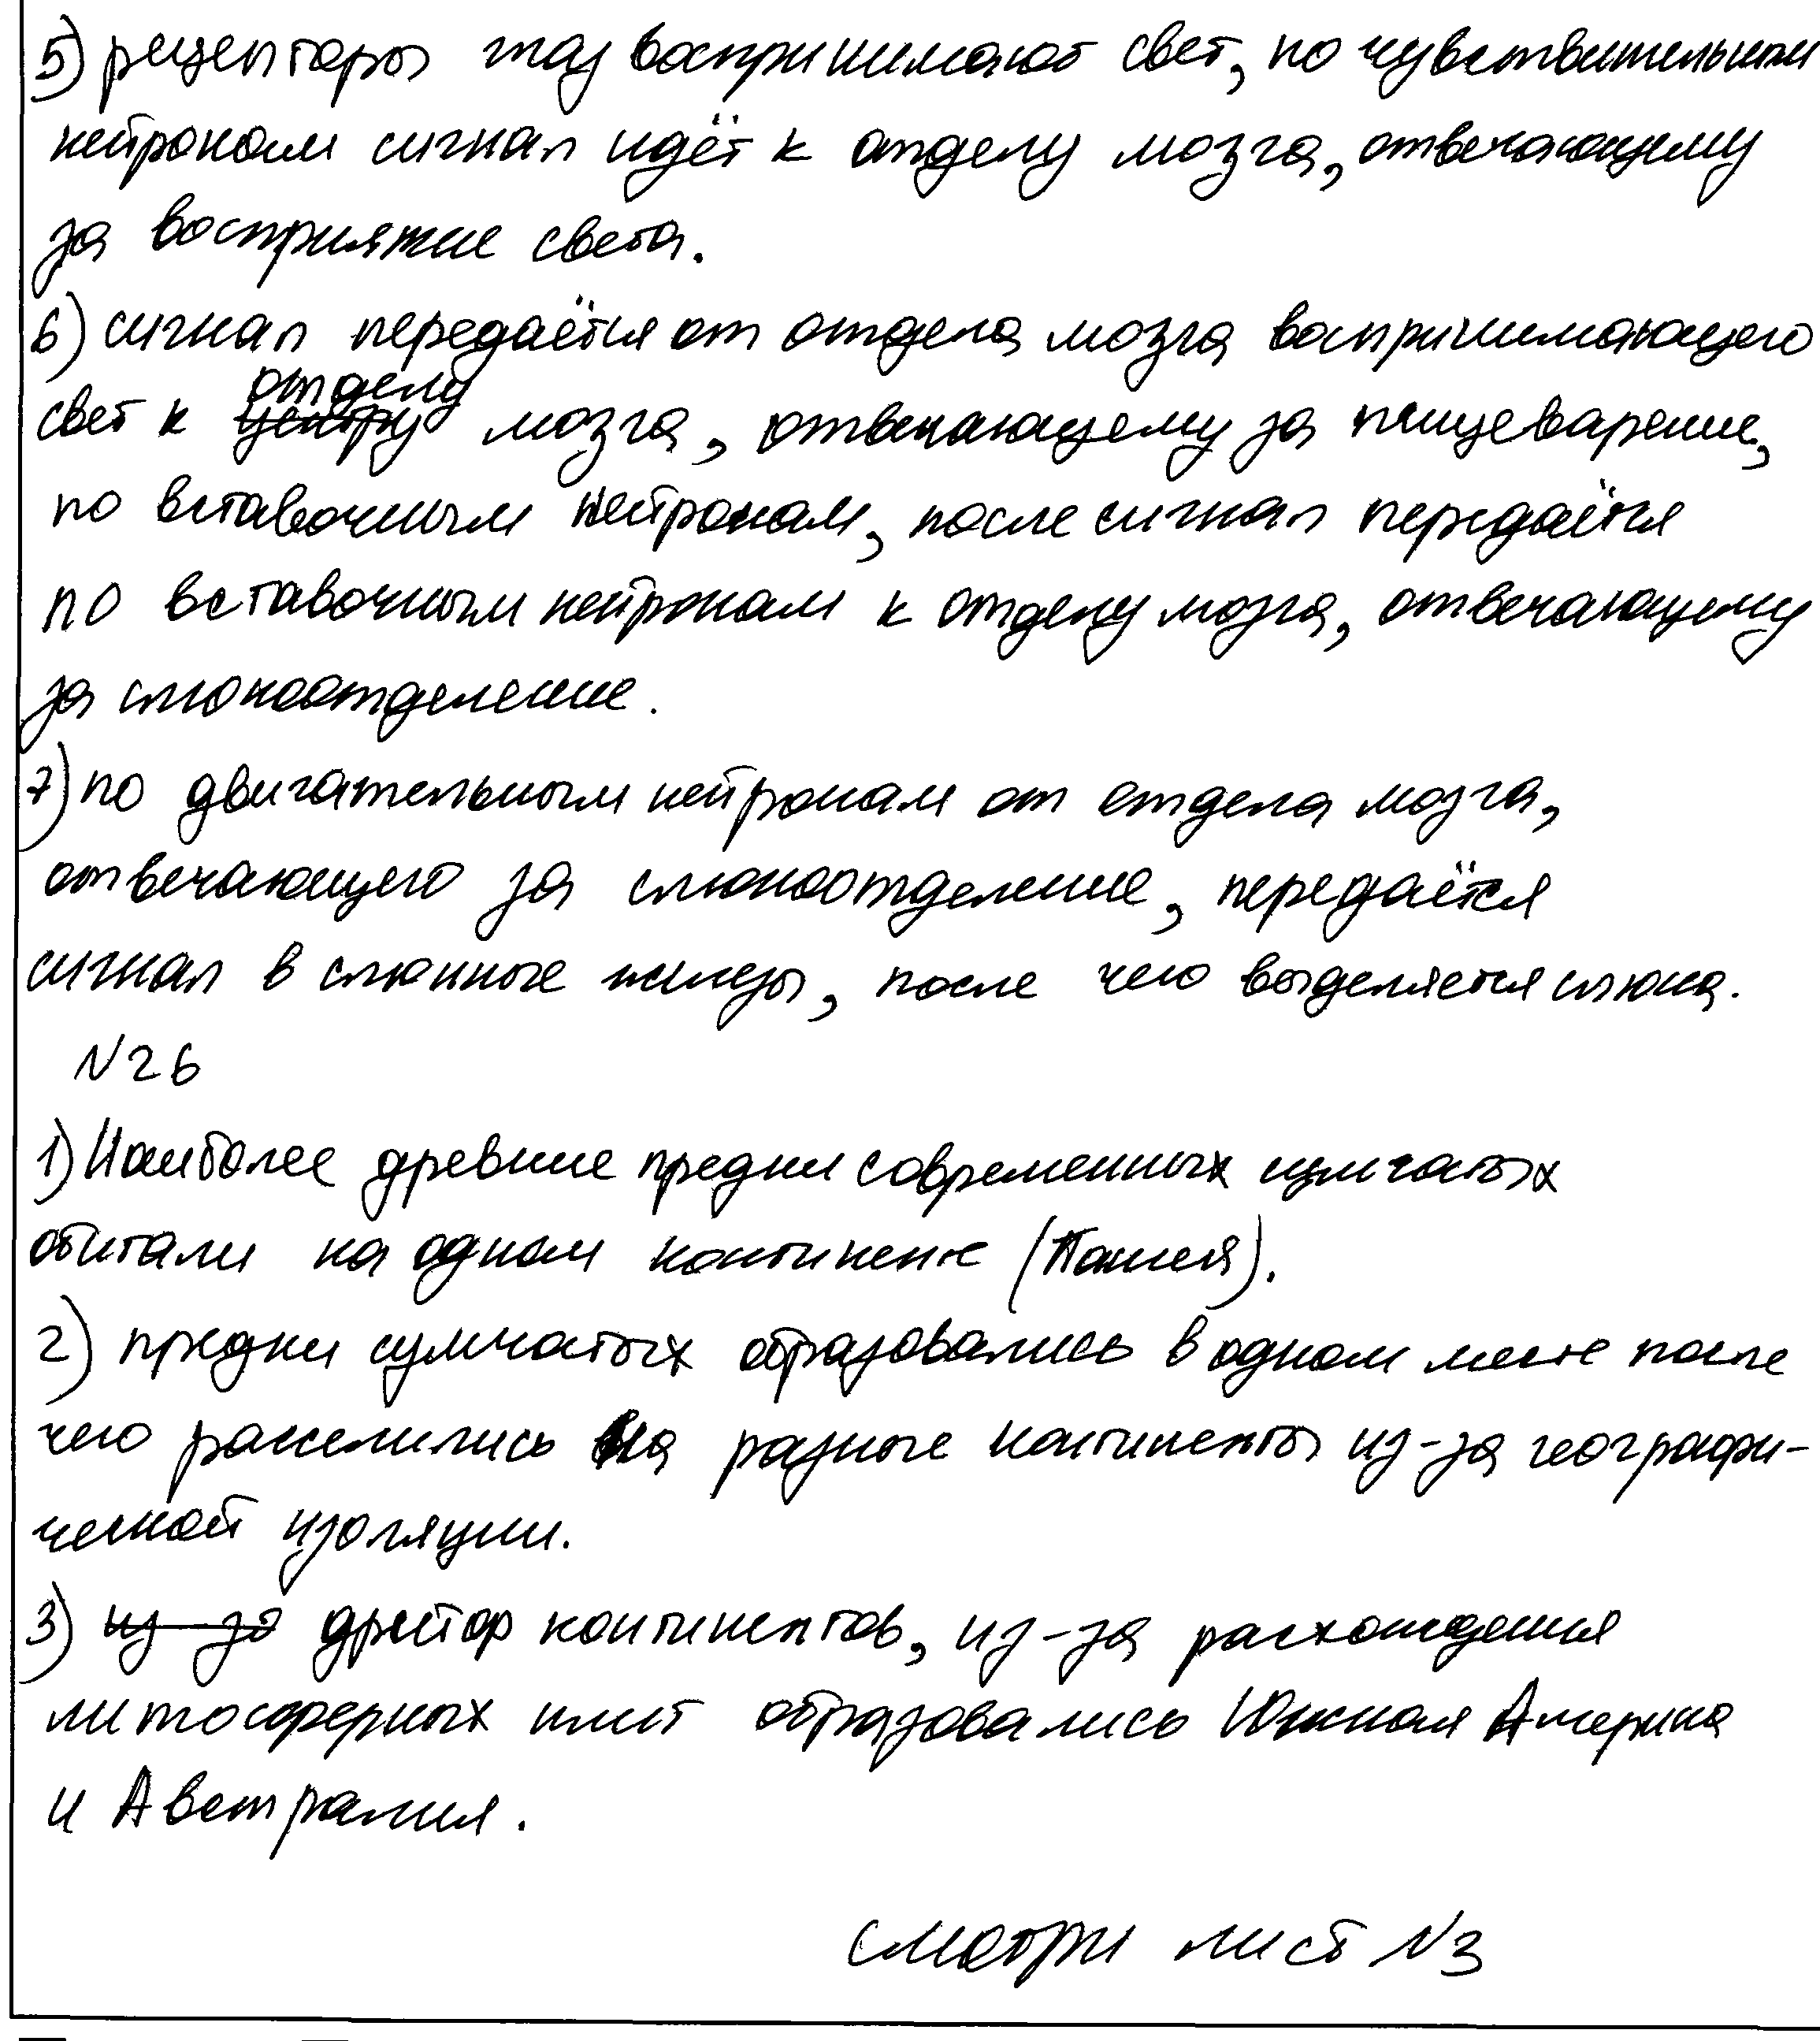 5) рецепторы глаз воспринимают свет, по чувствительным
нейронам сигнал идёт к отделу мозга, отвечающему
за восприятие света.
6) сигнал передаётся от отдела мозга воспринимающего
свет к отделу мозга, отвечающему за пищеварение,
по вставочным нейронам, после сигнал передаётся
по вставочным нейронам к отделу мозга, отвечающему
за слюноотделение.
7) по двигательным нейронам от отдела мозга,
отвечающего за слюноотделение, передаётся
сигнал в слюнные железы, после чего выделяется слюна.
№26
1) Наиболее древние предки современных сумчатых
обитали на одном континенте (Пангея).
2) предки сумчатых образовались в одном месте после
чего расселились на разные континенты из-за географи-
ческой изоляции.
3) из-за дрейф континентов, из-за расхождения
литосферных плит образовались Южная Америка
и Австралия.
смотри лист №3